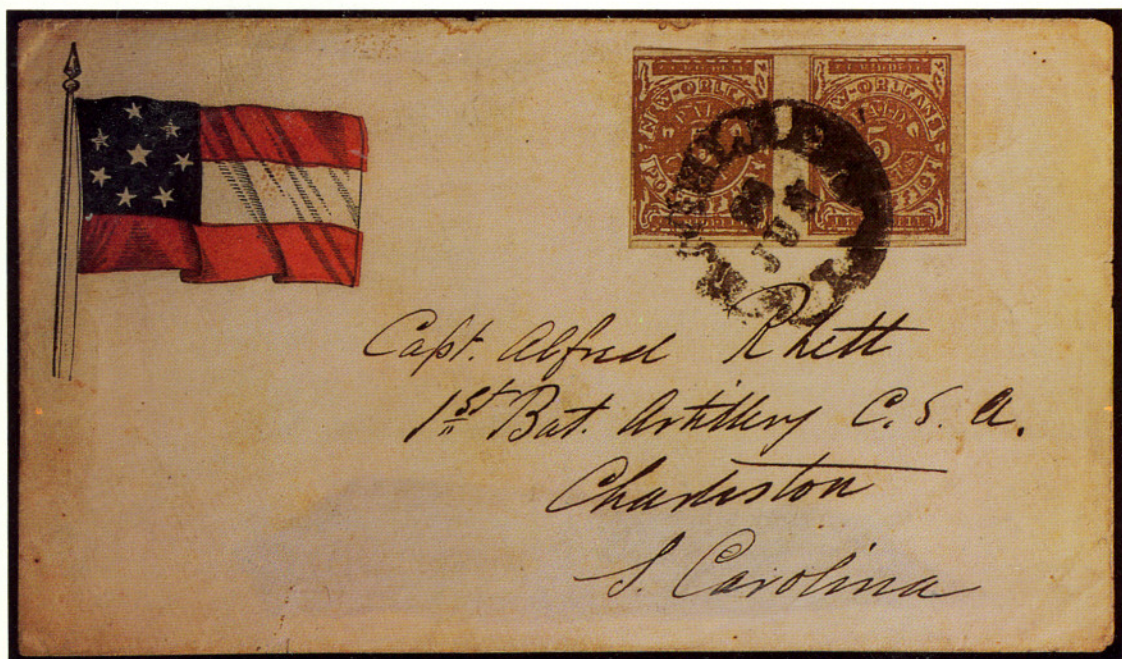 NEW-ORLEANS NEW-ORLEANS
PAID PAID
5 5
POST
JUN
Capt. Alfred Rhett
1st Bat. Artillery C. S. A.
Charleston
S. Carolina